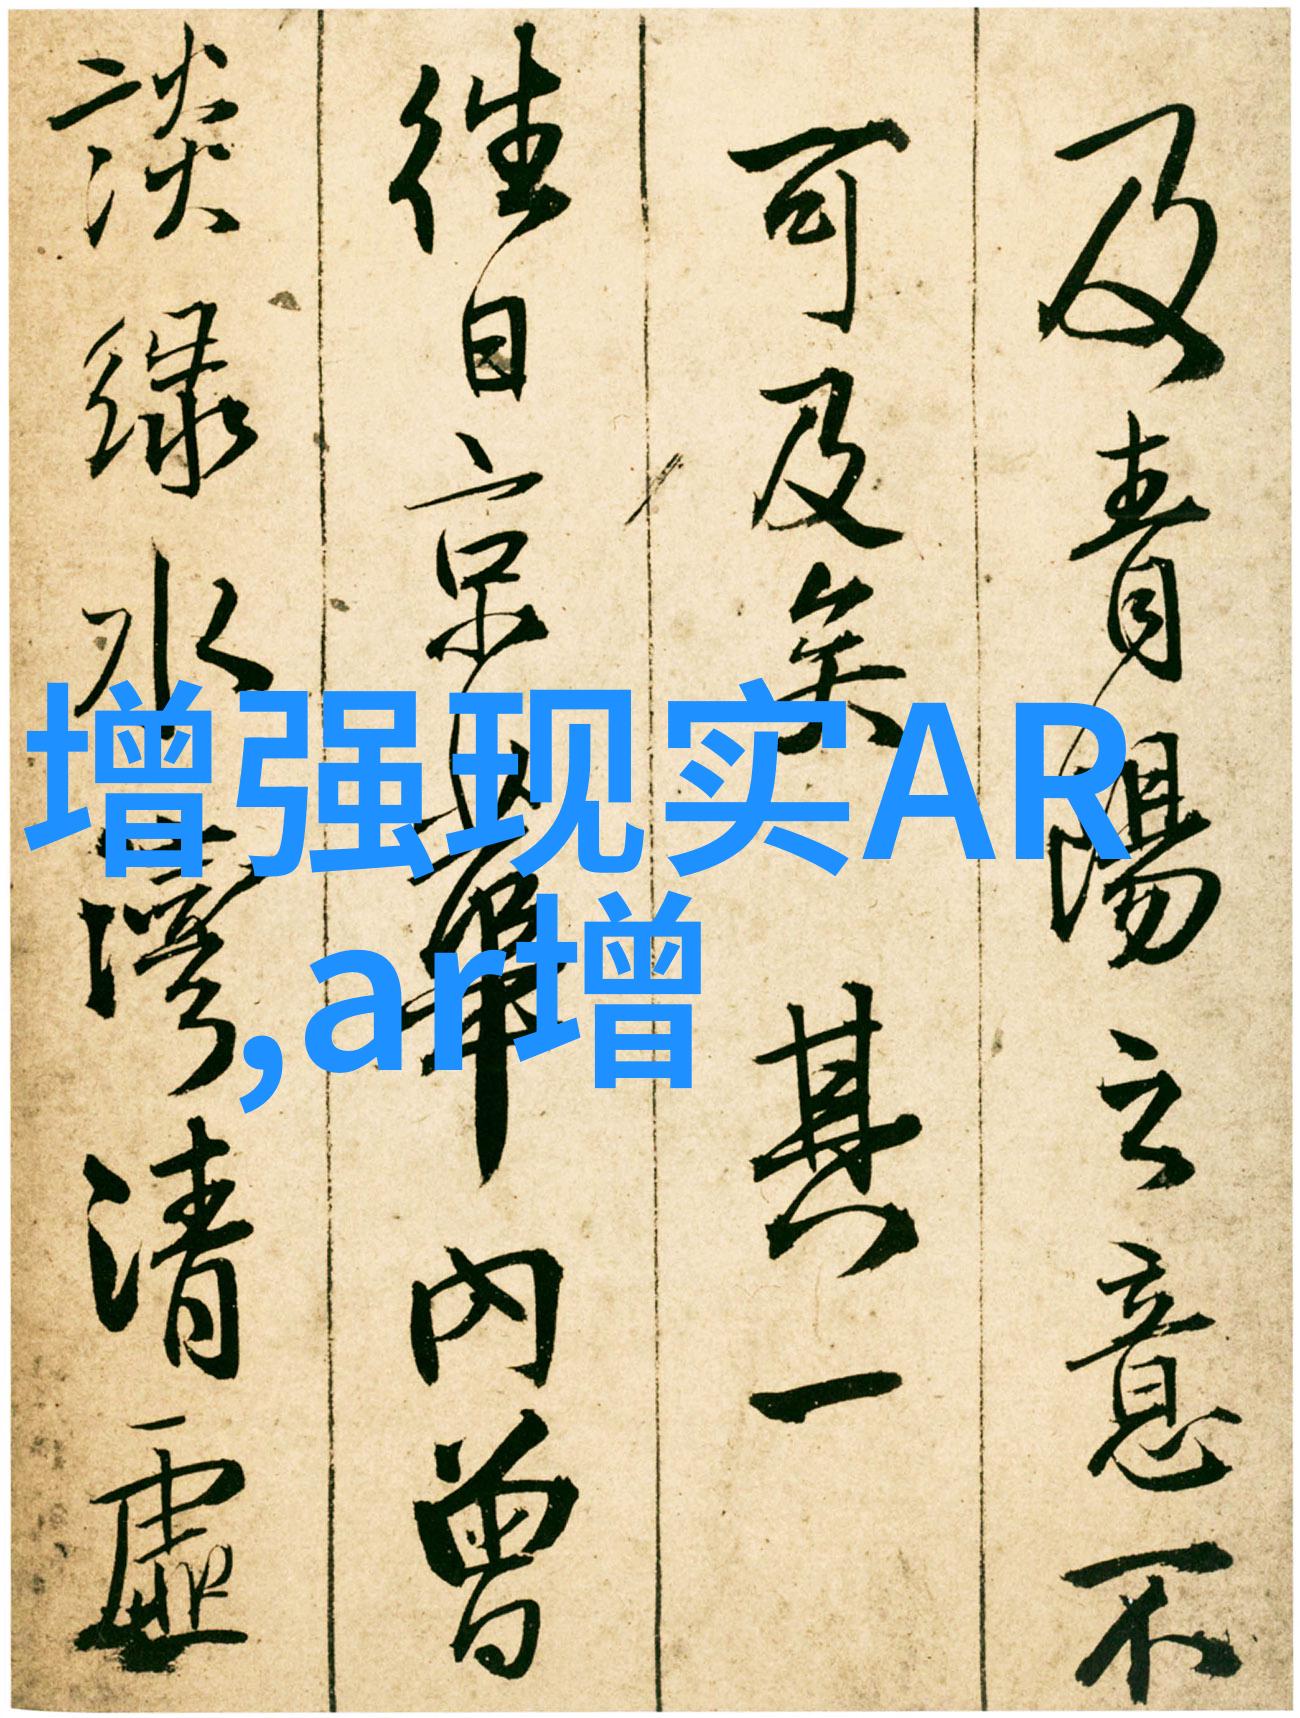 及青陽立意不
可及矣 其一
往日京華內曾
談綠水灣清虛
增强现实AR
,ar增